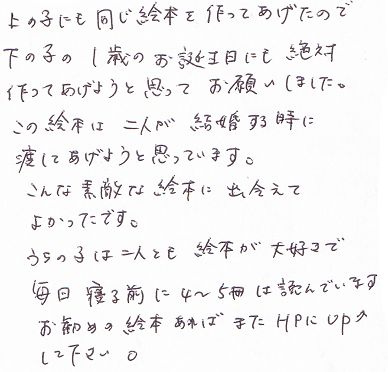 上の子にも同じ絵本を作ってあげたので
下の子の1歳のお誕生日にも絶対
作ってあげようと思ってお願いしました。
この絵本は二人が結婚する時に
渡してあげようと思っています。
こんな素敵な絵本に出会えて
よかったです。
うちの子は二人とも絵本が大好きで
毎日寝る前に4〜5冊は読んでいます
お勧めの絵本あればまたHPにUP
して下さい。